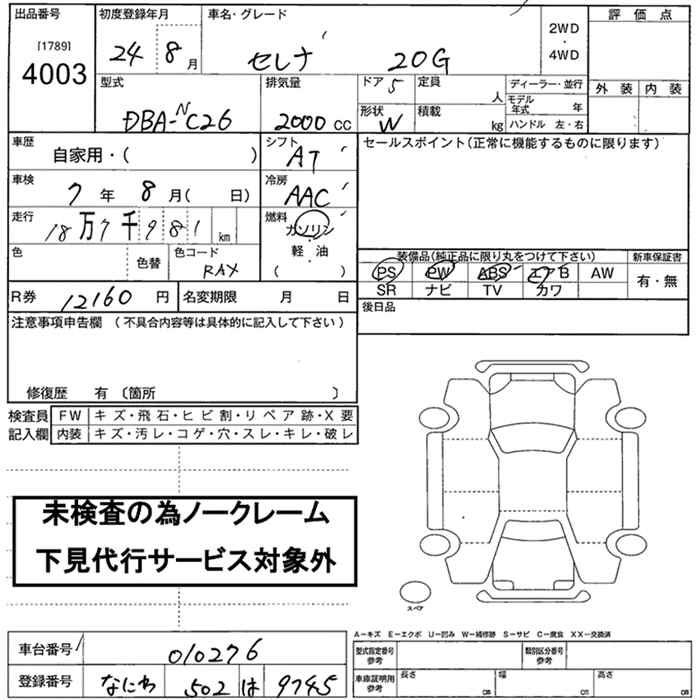 出品番号 初度登録年月 車名・グレード 評価点
[1789]
4003
24 8月 セレナ 20G 2WD・4WD
型式 排気量 ドア 5 定員 人 ディーラー・並行 外装 内装
DBA-NC26 2000 CC 形状 W 積載 kg モデル年式 年
ハンドル 左・右
車歴 シフト セールスポイント(正常に機能するものに限ります)
自家用・( ) AT
車検 冷房
7年 8月( 日) AAC
走行 燃料
18万7千981 km ガソリン・軽・油
( )
色 色替 色コード RAX
装備品(純正品に限り丸をつけて下さい) 新車保証書
PS PW ABS エアB AW 有・無
SR ナビ TV カワ
R券 12160円 名変期限 月 日 後日品
注意事項申告欄 (不具合内容等は具体的に記入して下さい)
修復歴 有 〔箇所 〕
検査員 FW キズ・飛石・ヒビ割・リペア跡・X要
記入欄 内装 キズ・汚レ・コゲ・穴・スレ・キレ・破レ
未検査の為ノークレーム
下見代行サービス対象外
スペア
A－キズ E－エクボ U－凹み W－補修跡 S－サビ C－腐食 XX－交換済
車台番号 010276 型式指定番号 参考 類別区分番号 参考
登録番号 なにわ 502 は 9745 車庫証明用 参考 長さ cm 幅 cm 高さ cm